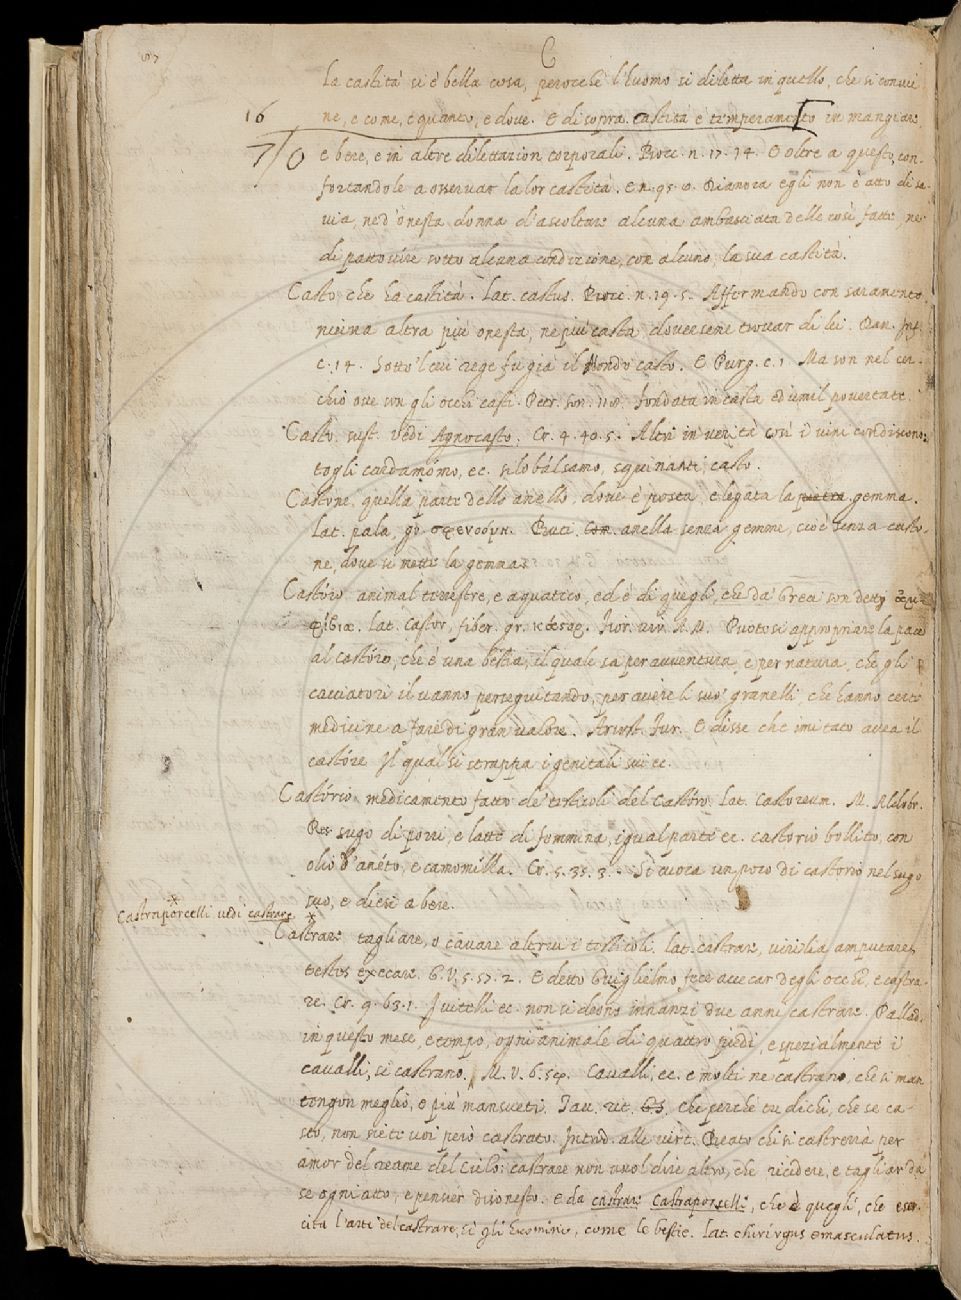 C
la castità si è bella cosa, perocchè l'huomo si diletta in quello, che si convie-
16
ne, e come, e quanto, e dove. E di sopra. castità è temperamento in mangiare,
7/0
e bere, e in altre dilettazion corporali. Bocc. n. 17. 14. E oltre a questo, con-
fortandole a osservar la lor castità. E n. 95. Dianora egli non è atto di sa-
via, nè d'onesta donna d'ascoltare alcuna ambasciata delle così fatte, nè
di pattovire sotto alcuna condizione, con alcuno, la sua castità.
Casto che ha castità. lat. castus. Bocc. n. 19. 5. Affermando con saramento
niuna altra più onesta, nè più casta dovessene trovar di lei. Dan. Inf.
c. 14. Sotto 'l cui rege fu già il Mondo casto. E Purg. c. 1 Ma son nel cer-
chio ove son gli occhi casti. Petr. son. fondata in casta ed umil povertate.
Casto. sust. vedi Agnocasto. Cr. 4. 40. 5. Altri in verità così i vini condiscono:
togli cardamomo, ec. silobálsamo, squinanti, casto.
Castone. quella parte dello anello, dove è posta, e legata la pietra gemma.
lat. pala, gr. σφενδόνη. Buti anella senza gemme, cioè senza casto-
ne, dove si mette la gemma.
Castóro animal terrestre, e aquatico, ed è di quegli, che da' Greci son detti ἀμ-
φίβια. lat. Castor, fiber. gr. κάστορ. Fior. vir. A. M. Puotesi appropriare la pace
al castóro, che è una bestia, il quale sa per avventura, e per natura, che gli
cacciatori il vanno perseguitando, per avere li suo' granelli, che hanno certe
medicine a fare di gran valore. Ariost. Fur. E disse che imitato avea il
castóre Il qual si strappa i genitali sui ec.
Castório medicamento fatto de' testicoli del Castóro. lat. Castoreum. M. Aldobr.
sugo di porri, e latte di femmina, igual parte ec. castorio bollito, con
olio d'anéto, e camomilla. Cr. 5. 35. 3. Si cuoca un poco di castorio nel sugo
suo, e diesi a bere.
* Castraporcelli vedi castrare
* Castrare tagliare, o cavare altrui i testicoli. lat. castrare, virilia amputare,
testes exsecare. G. V. 5. 57. 2. E detto Guiglielmo fece accecar degli occhi, e castra-
re. Cr. 9. 63. 1. I vitelli ec. non si deono innanzi due anni castrare. Pallad.
in questo mese, e tempo, ogni animale di quattro piedi, e spezialmente i
cavalli, si castrano. M. V. 6. 54. Cavalli, ec. e molti ne castrano, che si man-
tengon meglio, e più mansueti. Tav. rit. che perchè tu dichi, che se ca-
sto, non siete voi però castrato. Introd. alle virt. Beato chi si castrerrà per
amor del reame del Cielo: castrare non vuol dire altro, che ricidere, e tagliar da
se ogni atto, e pensier disonesto. e da castrare Castraporcelli, che è quegli, che eser-
cita l'arte del castrare, sì gli huomini, come le bestie. lat. chirurgus emasculatus.